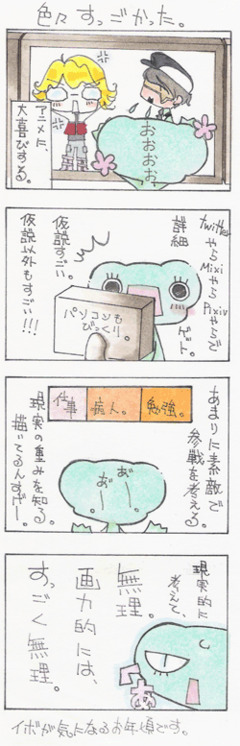 色々すっごかった。
おおおお。
アニメに、
大喜びする。
twitterやら
Mixiやら
Pixivやらで
詳細
ゲット。
仮説すごい。
パソコンも
びっくり。
仮説以外もすごい!!!
仕事
病人。
勉強。
あまりに素敵で
参戦を考える。
あ゛ー
あ゛ー
現実の重みを知る。
描いてるんすげー。
現実的に
考えて、
無理。
画力的には、
すっごく無理。
イボが気になるお年頃です。